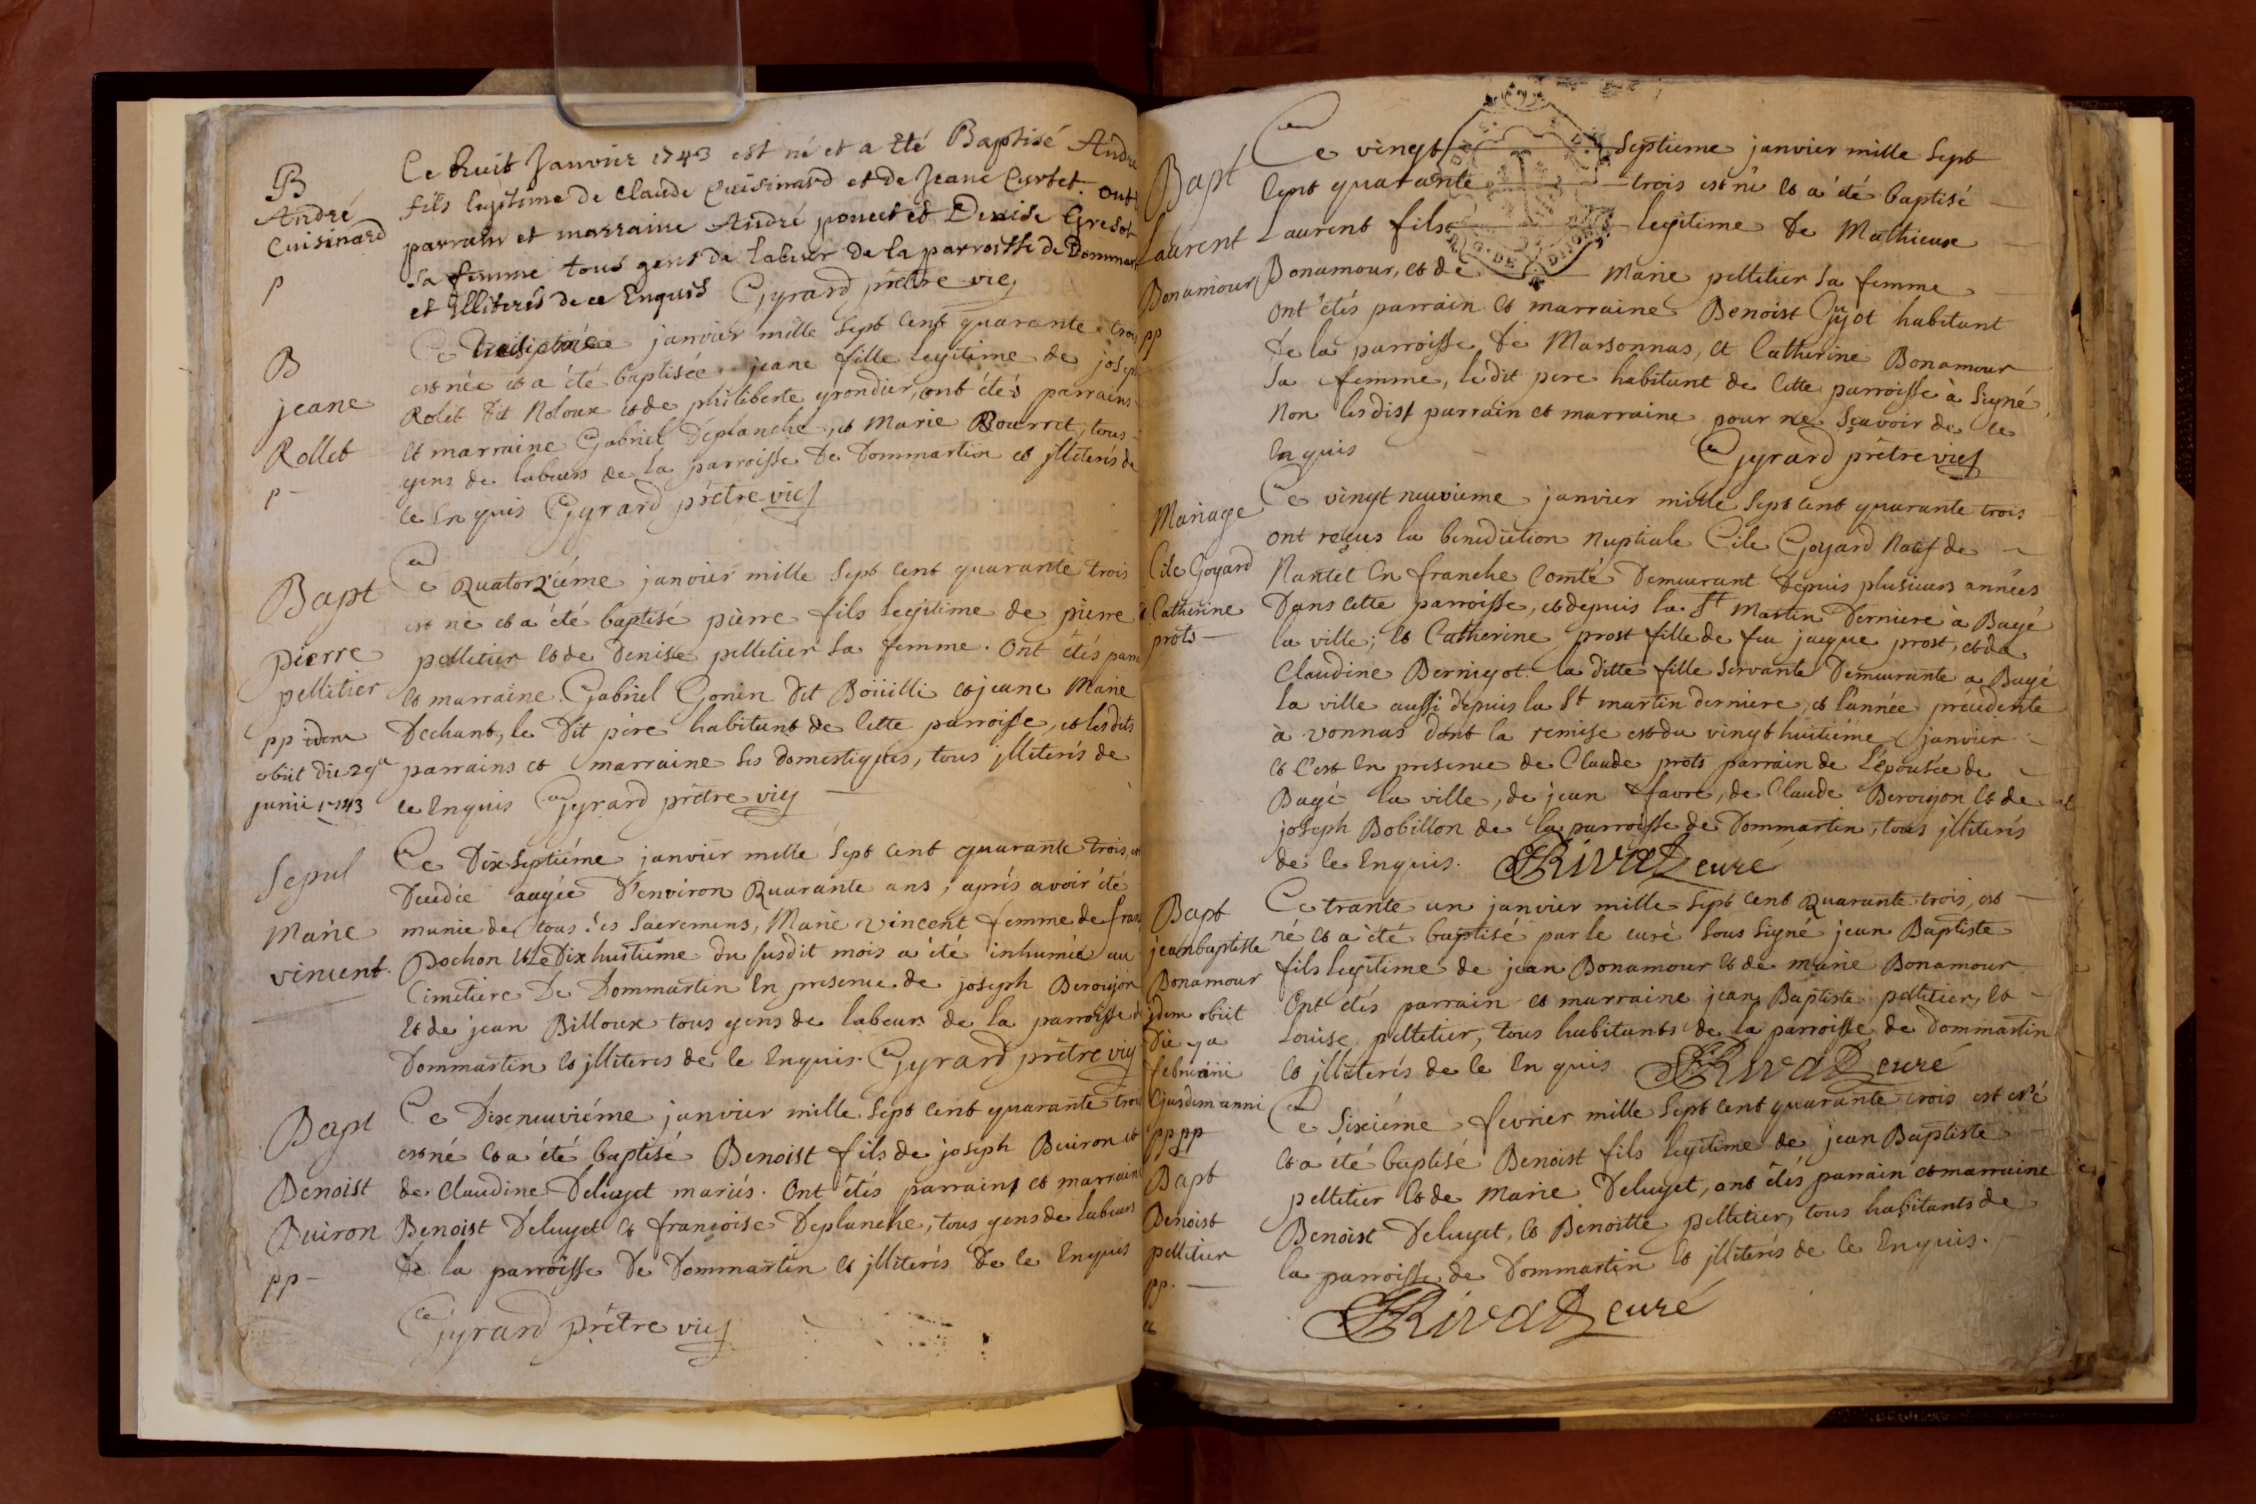 B
André
Cuisinard
p
Ce huit Janvier 1743 est né et a été Baptisé André
fils legitime de Claude Cuisinard et de Jeane Curtet. ont
parrain et marraine André poncet et Denise Gresot
sa femme tous gens de labeur de la parroisse de Dommart
et Illiterés de ce Enquis Gyrard prêtre vic
B
jeane
Rollet
p
Ce janvier mille sept cent quarante trois
est née et a été baptisée jeane fille legitime de joseph
Rolet dit Noloux et de philiberte grondier, ont étés parrains
et marraine Gabriel Deplanche, et Marie Bourret, tous
gens de labeurs de la parroisse De Dommartin et jlliterés de
ce Enquis Gyrard prêtre vic
Bapt
pierre
pellitier
pp idem
obiit die 29a
junii 1743
Ce Quatorziéme janvier mille sept cent quarante trois
est né et a été baptisé pierre fils legitime de pierre
pelletier et de Denise pelletier sa femme. Ont étés parr
et marraine Gabriel Gonin dit Boüilli et jeane Marie
Dechant, le Dit pére habitant de cette parroisse, et lesdits
parrains et marraine ses domestiques, tous jlliterés de
ce Enquis Gyrard prêtre vic
Sepul
Marie
vincent.
Ce Dix septiéme janvier mille sept cent quarante trois, est
Decédée aagée D'environ Quarante ans, aprés avoir été
munie de tous les Sacremens, Marie vincent femme de fran
Pochon et Le Dix huitiéme du susdit mois a été inhumée au
Cimetiere De Dommartin En presence de joseph Beroujon
et de jean Billoux tous gens de labeurs de la parroisse d
Dommartin et jlliterés de ce Enquis. Gyrard prêtre vic
Bapt
Benoist
Buiron
pp
Ce Dix neuviéme janvier mille sept cent quarante trois
est né et a été baptisé Benoist fils de joseph Buiron et
de Claudine Deluget mariés. Ont étés parrains et marraine
Benoist Deluget et françoise Deplanche, tous gens de labeurs
de la parroisse De Dommartin et jlliterés de ce Enquis
Gyrard prêtre vic
Bapt
Laurent
Bonamour
pp
Ce vingt septieme janvier mille sept
cent quarante trois est né et a été baptisé
Laurent fils legitime de Mathieux
Bonamour, et de Marie pelletier sa femme
ont étés parrain et marraine Benoist Guyot habitant
de la parroisse de Marsonnas, et Catherine Bonamour
sa femme, ledit pere habitant de cette parroisse à signé,
Non lesdist parrain et marraine pour ne sçavoir de ce
Enquis Gyrard prêtre vic
Mariage
Cile Goyard
Catherine
prots
Ce vingt neuvieme janvier mille sept cent quarante trois
ont reçus la benediction nuptiale Cile Goyard Natif de
Nantet En franche Comté Demeurant depuis plusieurs années
Dans cette parroisse, et depuis la St Martin Derniere à Bagé
la ville; et Catherine prost fille de feu jacque prost, et de
Claudine Bernigot. la ditte fille servante Demeurante a Bagé
la ville aussi depuis la St martin derniere, et l'année précédente
à vonnas dont la remise est du vingt huitiéme janvier
et c'est En presence de Claude prots parrain de l'épousée de
Bagé la ville, de jean favre, de Claude Beroujon et de
joseph Bobillon de la parroisse de Dommartin, tous jlliterés
de ce Enquis. Rivat curé
Bapt
jean baptiste
Bonamour
jdem obiit
Die
februarii
Ejusdem anni
pp pp
Ce trante un janvier mille sept cent Quarante trois, est
né et a été baptisé par le curé sous signé jean Baptiste
fils legitime de jean Bonamour et de marie Bonamour
Ont étés parrain et marraine jean Baptiste pelletier, et
Louise pelletier, tous habitants de la parroisse de Dommartin
et jlliterés de ce Enquis Rivat curé
Bapt
Benoist
pellitier
pp.
Ce Sixiéme fevrier mille sept cent quarante trois est né
et a été baptisé Benoist fils legitime de jean Baptiste
pelletier et de Marie Deluget, ont étés parrain et marraine
Benoist Deluget, et Benoitte pelletier, tous habitants de
la parroisse de Dommartin et jlliterés de ce Enquis.
Rivat curé